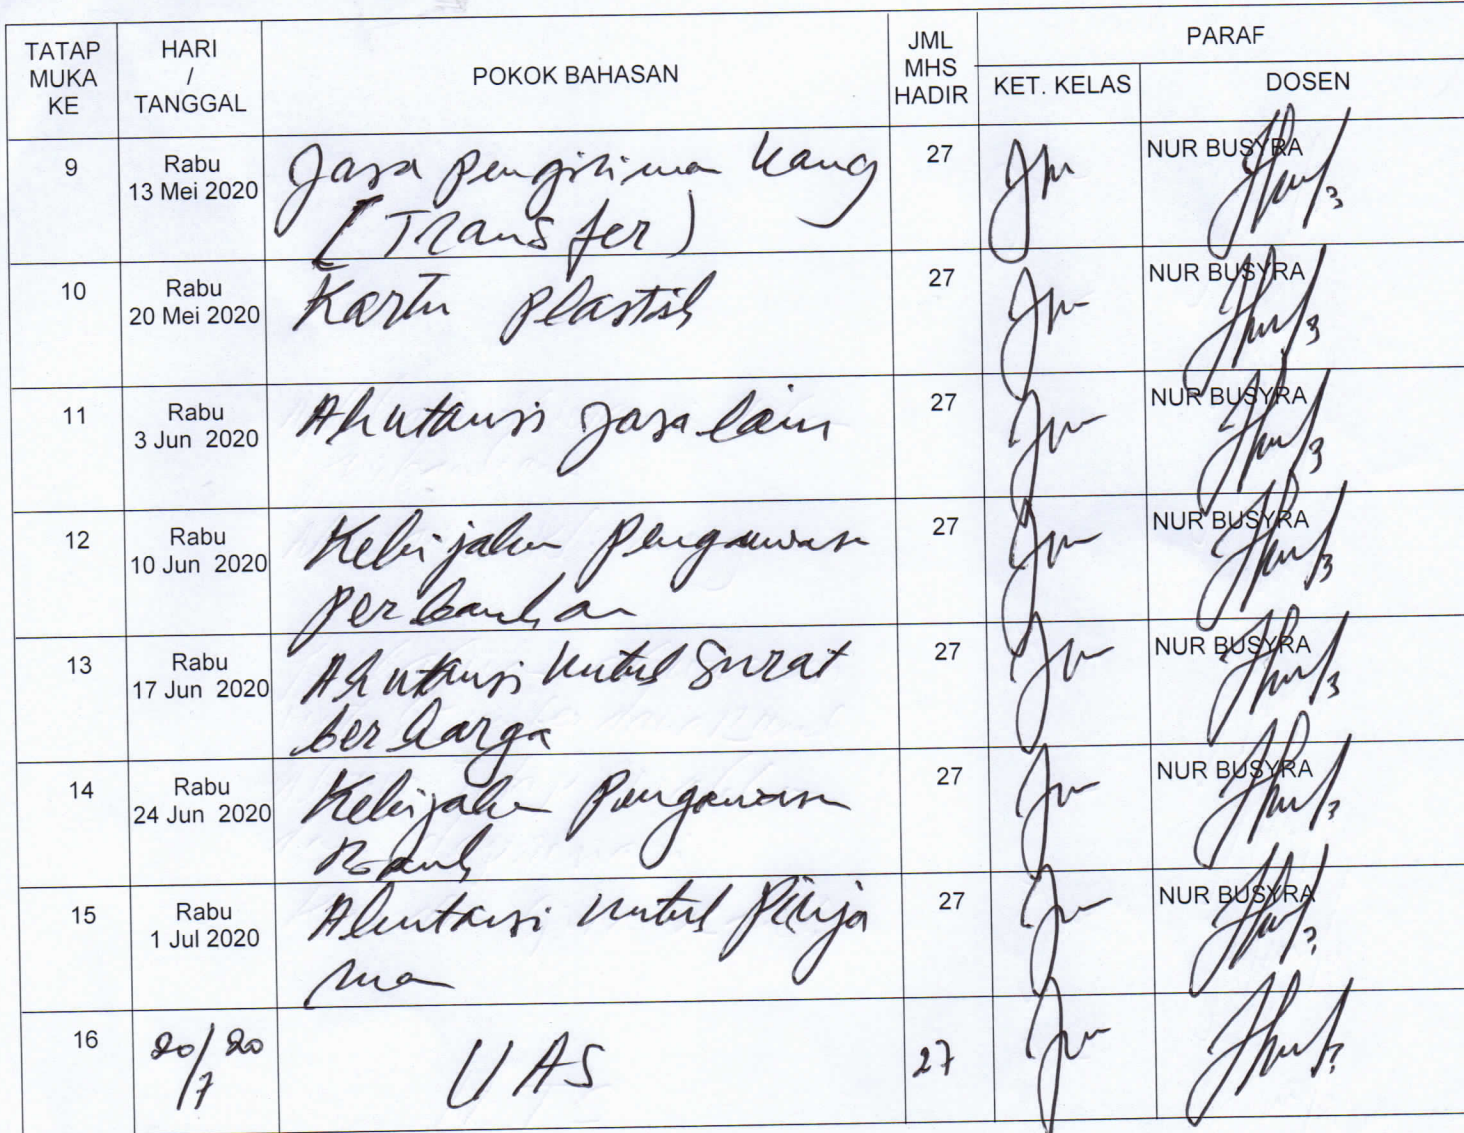 TATAP MUKA KE
HARI / TANGGAL
POKOK BAHASAN
JML MHS HADIR
PARAF
KET. KELAS
DOSEN
9 Rabu 13 Mei 2020 Jasa pengiriman uang 27 NUR BUSYRA
(Transfer)
10 Rabu 20 Mei 2020 Kartu plastik 27 NUR BUSYRA
11 Rabu 3 Jun 2020 Akutansi jasa lain 27 NUR BUSYRA
12 Rabu 10 Jun 2020 Kebijakan pengawasan 27 NUR BUSYRA
perbankan
13 Rabu 17 Jun 2020 Akutansi untuk Surat 27 NUR BUSYRA
berharga
14 Rabu 24 Jun 2020 Kebijakan Pengawasan 27 NUR BUSYRA
Bank
15 Rabu 1 Jul 2020 Akutansi untuk Pinja 27 NUR BUSYRA
man
16 20/7 20 UAS 27